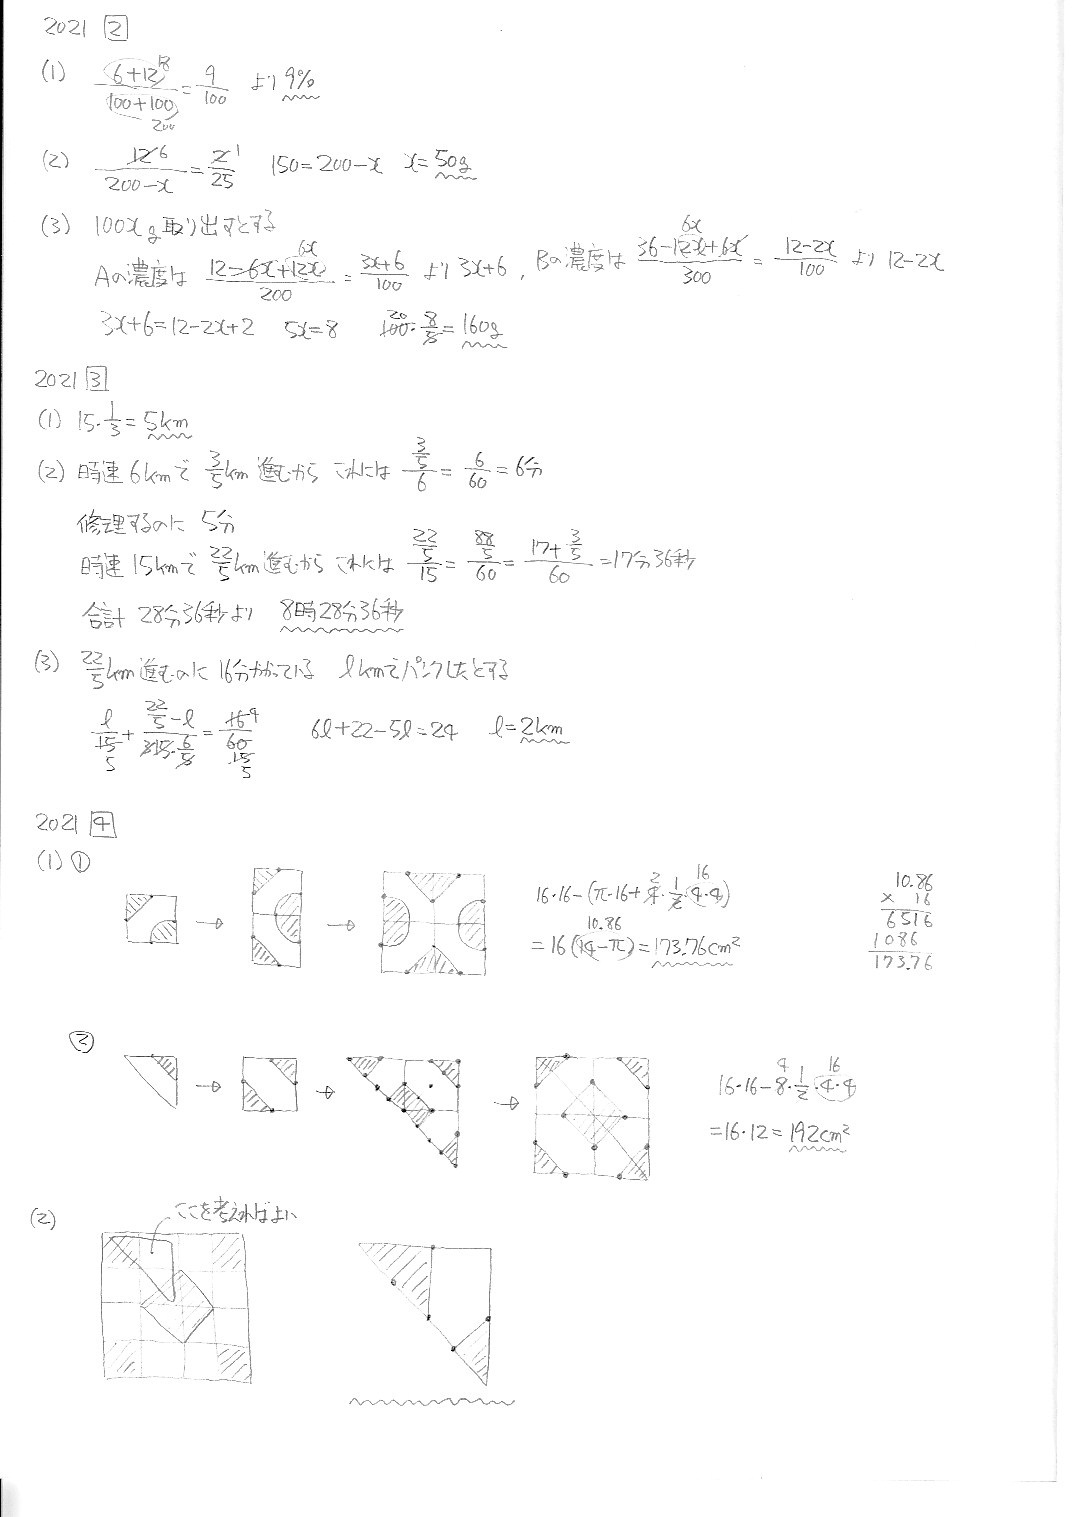 2021 2
(1) (6+12)/(100+100) = 9/100 より 9%
18
200
(2) 12/(200-x) = 2/25 150=200-x x=50g
6 1
(3) 100xg 取り出すとする
Aの濃度は (12-6x+12x)/200 = (3x+6)/100 より 3x+6, Bの濃度は (36-12x+6x)/300 = (12-2x)/100 より 12-2x
6x 6x
3x+6=12-2x+2 5x=8 100・8/5=160g
20
2021 3
(1) 15・1/3=5km
(2) 時速6kmで 3/5km 進むから これには (3/5)/6 = 6/60 = 6分
修理するのに 5分
時速15kmで 22/5km進むから これには (22/5)/15 = (88/5)/60 = (17+3/5)/60 = 17分36秒
合計 28分36秒より 8時28分36秒
(3) 22/5km進むのに 16分かかっている lkmでパンクしたとする
l/15 + (22/5-l)/(15・6/5) = 16/60 6l+22-5l=24 l=2km
5 3 4 15 5
2021 4
(1) ①
16・16-(π・16+4・1/2・4・4)
2 16
=16(14-π)=173.76cm²
10.86
10.86
× 16
6516
1086
173.76
②
16・16-8・1/2・4・4
4 16
=16・12=192cm²
(2)
ここを考えればよい